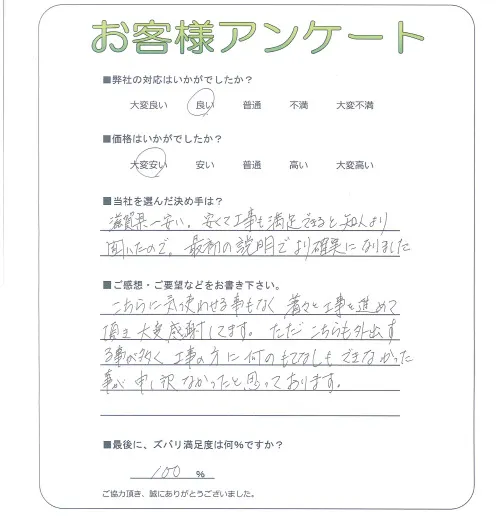 お客様アンケート
■弊社の対応はいかがでしたか？
大変良い 良い 普通 不満 大変不満
■価格はいかがでしたか？
大変安い 安い 普通 高い 大変高い
■当社を選んだ決め手は？
滋賀県一安い。安くて工事も満足できると知人より
聞いたので。最初の説明でより確実になりました
■ご感想・ご要望などをお書き下さい。
こちらに気使わせる事もなく着々と工事を進めて
頂き大変感謝してます。ただこちらも外出す
る事が多く工事の方に何のもてなしもできなかった
事が申し訳なかったと思っております。
■最後に、ズバリ満足度は何%ですか？
100 %
ご協力頂き、誠にありがとうございました。